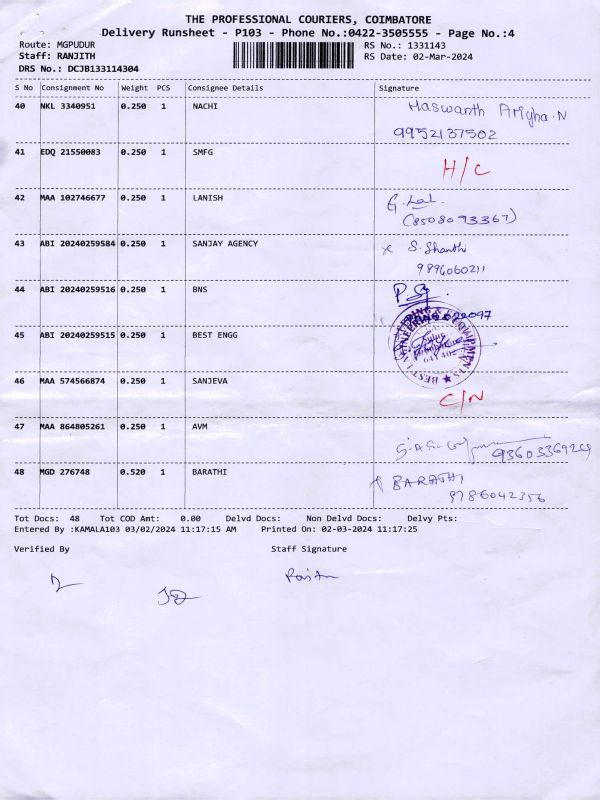 THE PROFESSIONAL COURIERS, COIMBATORE
Delivery Runsheet - P103 - Phone No.:0422-3505555 - Page No.:4
Route: MGPUDUR RS No.: 1331143
Staff: RANJITH RS Date: 02-Mar-2024
DRS No.: DCJB133114304
S No Consignment No Weight PCS Consignee Details Signature
40 NKL 3340951 0.250 1 NACHI Haswanth Arigha.N
9952137502
41 EDQ 21550083 0.250 1 SMFG H/C
42 MAA 102746677 0.250 1 LANISH G. Lal.
(8508093367)
43 ABI 20240259584 0.250 1 SANJAY AGENCY x S. Shanthi
9894060211
44 ABI 20240259516 0.250 1 BNS
45 ABI 20240259515 0.250 1 BEST ENGG
46 MAA 574566874 0.250 1 SANJEVA C/N
47 MAA 864805261 0.250 1 AVM
48 MGD 276748 0.520 1 BARATHI BARATHI
9786042356
Tot Docs: 48 Tot COD Amt: 0.00 Delvd Docs: Non Delvd Docs: Delvy Pts:
Entered By :KAMALA103 03/02/2024 11:17:15 AM Printed On: 02-03-2024 11:17:25
Verified By Staff Signature